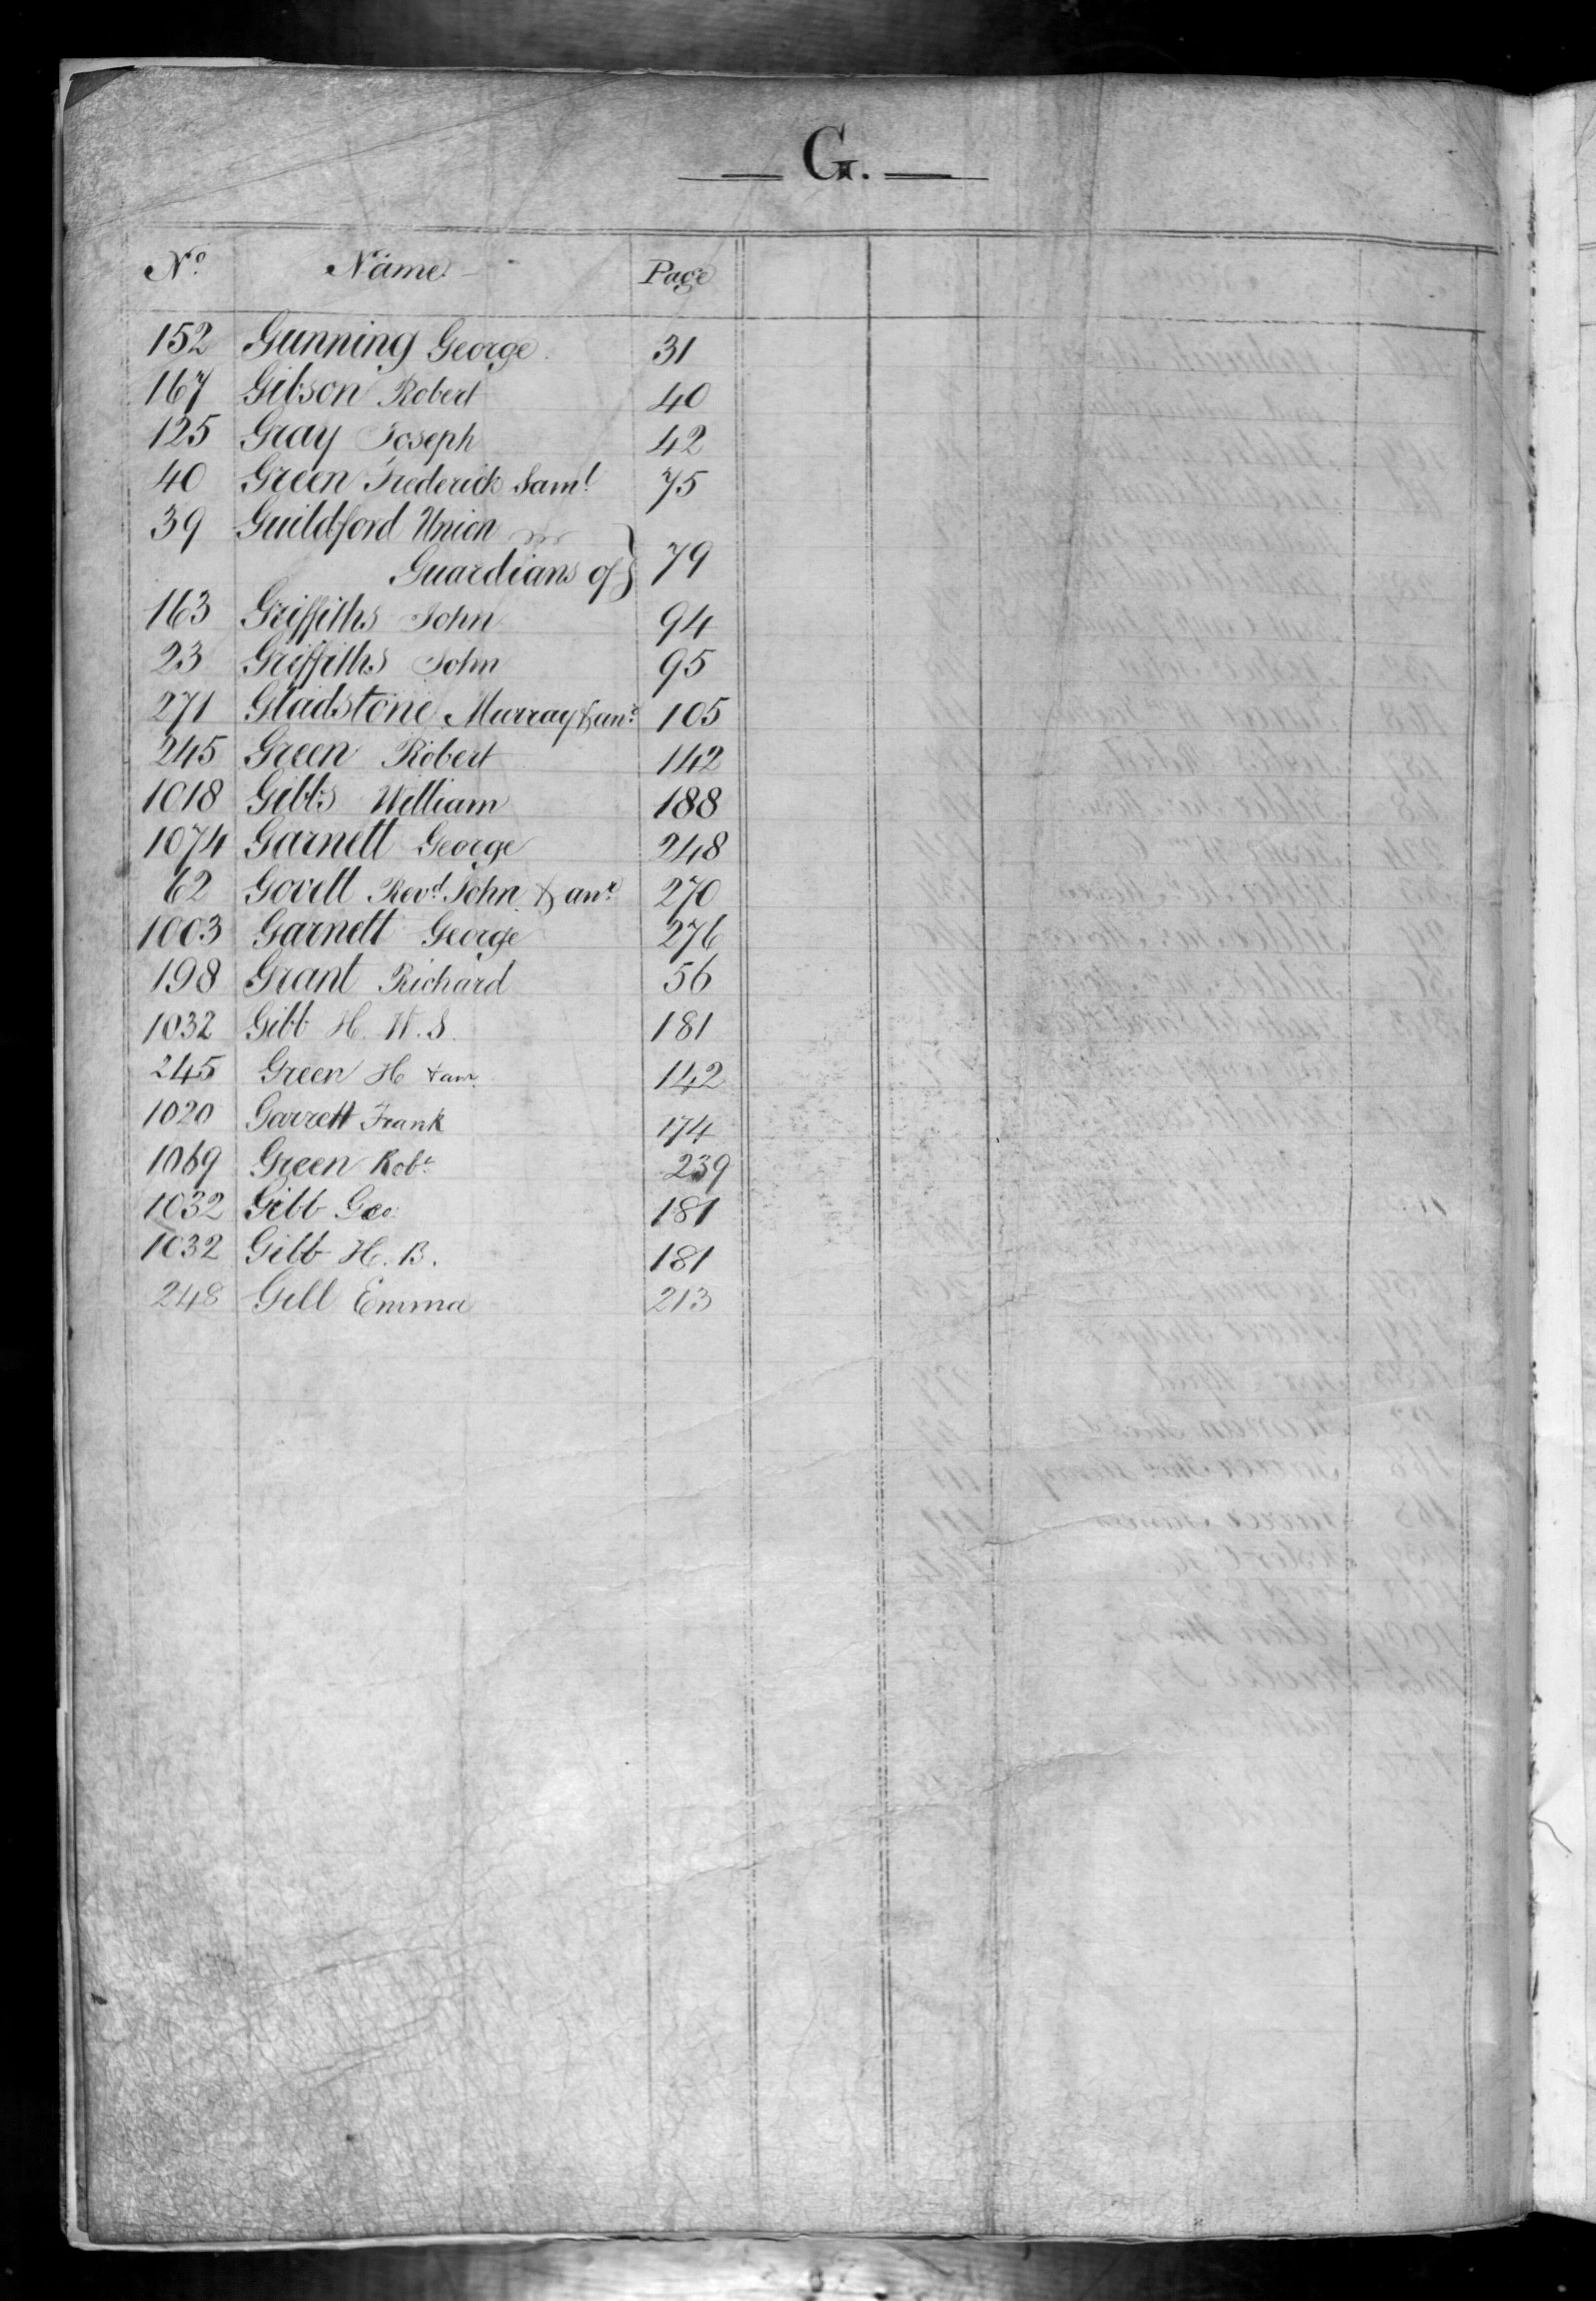 G.
No. Name Page
152 Gunning George 31
167 Gibson Robert 40
125 Gray Joseph 42
40 Green Frederick Saml. 75
39 Guildford Union
Guardians of } 79
163 Griffiths John 94
23 Griffiths John 95
271 Gladstone Murray & anr. 105
245 Green Robert 142
1018 Gibbs William 188
1074 Garnett George 248
62 Govett Revd. John & anr. 270
1003 Garnett George 276
198 Grant Richard 56
1032 Gibb H. W. S. 181
245 Green H & anr. 142
1020 Garrett Frank 174
1069 Green Robt. 239
1032 Gibb Geo. 181
1032 Gibb H. B. 181
248 Gill Emma 213